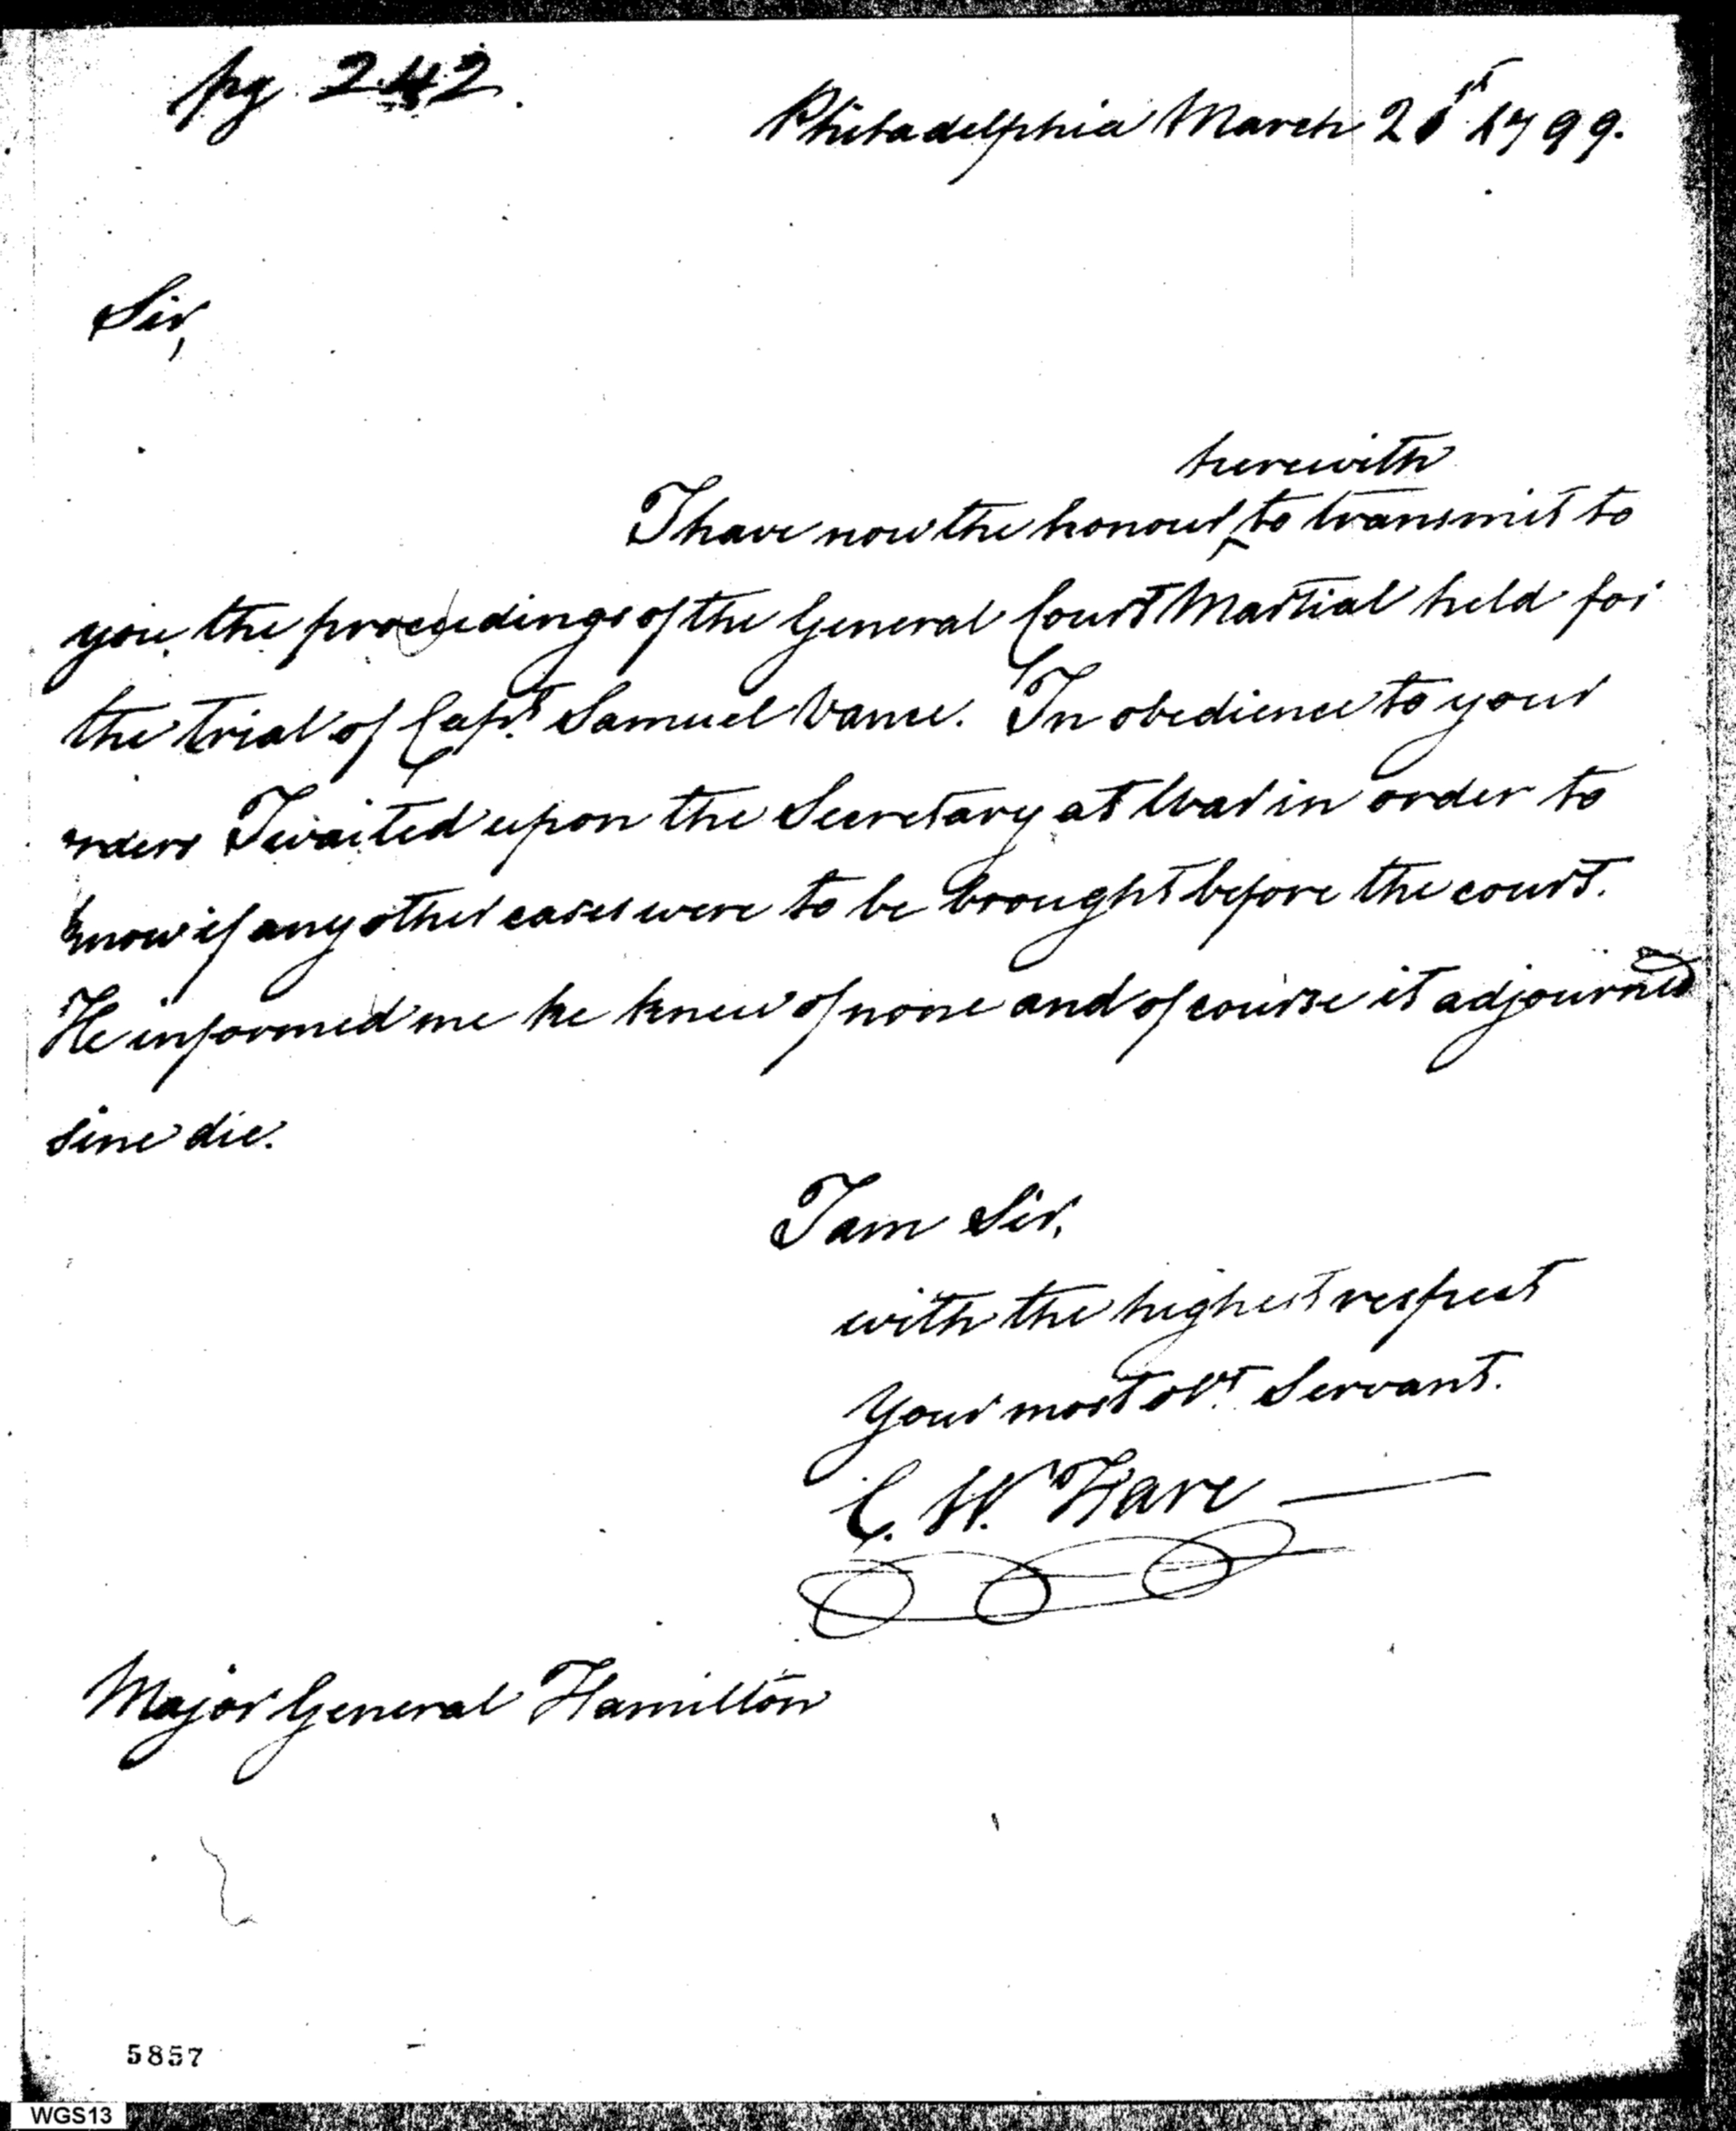 pg. 242.
Philadelphia March 21st 1799.
Sir,
herewith
I have now the honour ‸ to transmit to
you the proceedings of the General Court Martial held for
the trial of Capt. Samuel Vance. In obedience to your
orders I waited upon the Secretary at War in order to
know if any other cases were to be brought before the court.
He informed me he knew of none and of course it adjourned
sine die.
I am Sir,
with the highest respect
Your most obt. Servant.
C. W. Hare —
Major General Hamilton
5857
WGS13